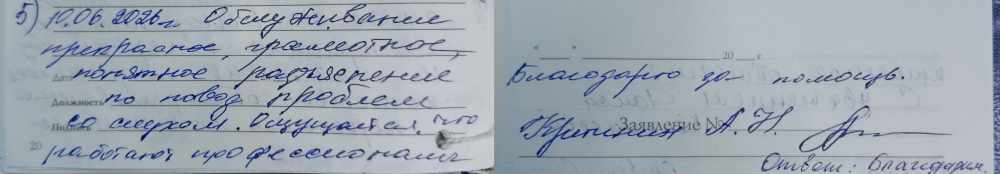 5) 10.06.2026г. Обслуживание
прекрасное, грамотное,
понятное разъяснение
Должность по повод проблем
со слухом. Ощущается, что
20 работают профессионалы
" " 20 г.
Благодарю за помощь.
Заявление № А. Н.
Ответ: Благодарим.